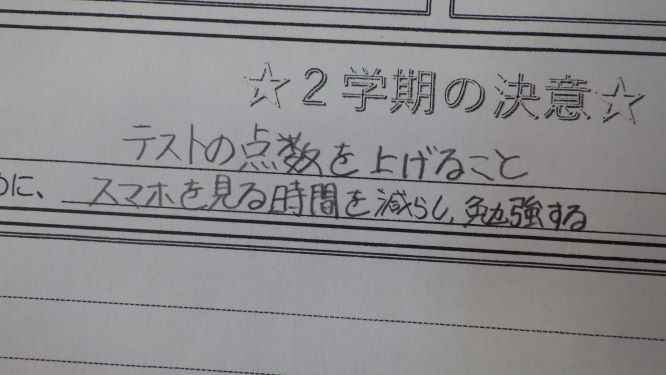 ☆2学期の決意☆
テストの点数を上げること
に、スマホを見る時間を減らし、勉強する